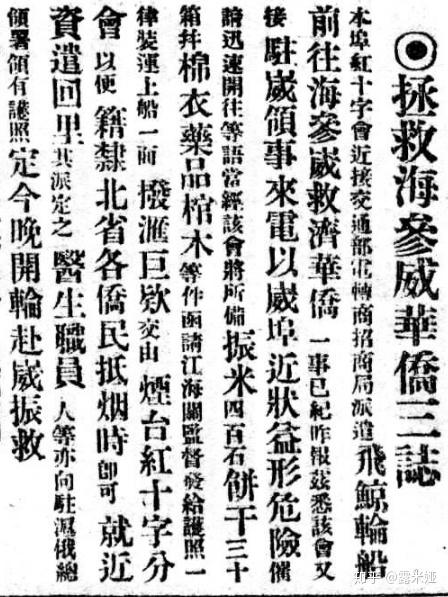 ◉拯救海參威華僑三誌
本埠紅十字會近接交通部電轉商招商局派遣飛鯨輪船
前往海參崴救濟華僑一事已紀昨報茲悉該會又
接駐崴領事來電以崴埠近狀益形危險催
請迅速開往等語當經該會將所備振米四百石餅干三十
箱幷棉衣藥品棺木等件函請江海關監督發給護照一
律裝運上船一面撥滙巨欵交由煙台紅十字分
會以便籍隸北省各僑民抵烟時卽可就近
資遣回里其派定之醫生職員人等亦向駐滬俄總
領署領有護照定今晚開輪赴崴振救
知乎 @露米娅